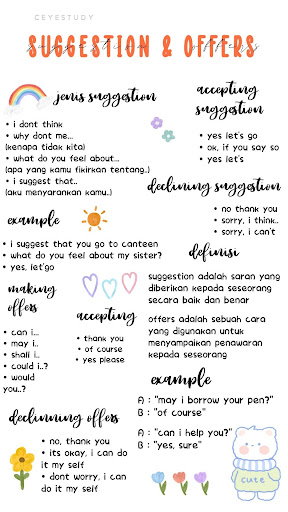 CEYESTUDY
SUGGESTION & OFFERS
suggestion & offers
jenis suggestion
• i dont think
• why dont me...
(kenapa tidak kita)
• what do you feel about...
(apa yang kamu fikirkan tentang..)
• i suggest that..
(aku menyarankan kamu..)
accepting
suggestion
• yes let's go
• ok, if you say so
• yes let's
declining suggestion
• no thank you
• sorry, i think..
• sorry, i can't
example
• i suggest that you go to canteen
• what do you feel about my sister?
• yes, let'go
definisi
suggestion adalah saran yang
diberikan kepada seseorang
secara baik dan benar
offers adalah sebuah cara
yang digunakan untuk
menyampaikan penawaran
kepada seseorang
making
offers
• can i...
• may i..
• shall i..
• could i..?
• would
you..?
accepting
• thank you
• of course
• yes please
example
A : "may i borrow your pen?"
B : "of course"
A : "can i help you?"
B : "yes, sure"
declinning offers
• no, thank you
• its okay, i can do
it my self
• dont worry, i can
do it my self
cute